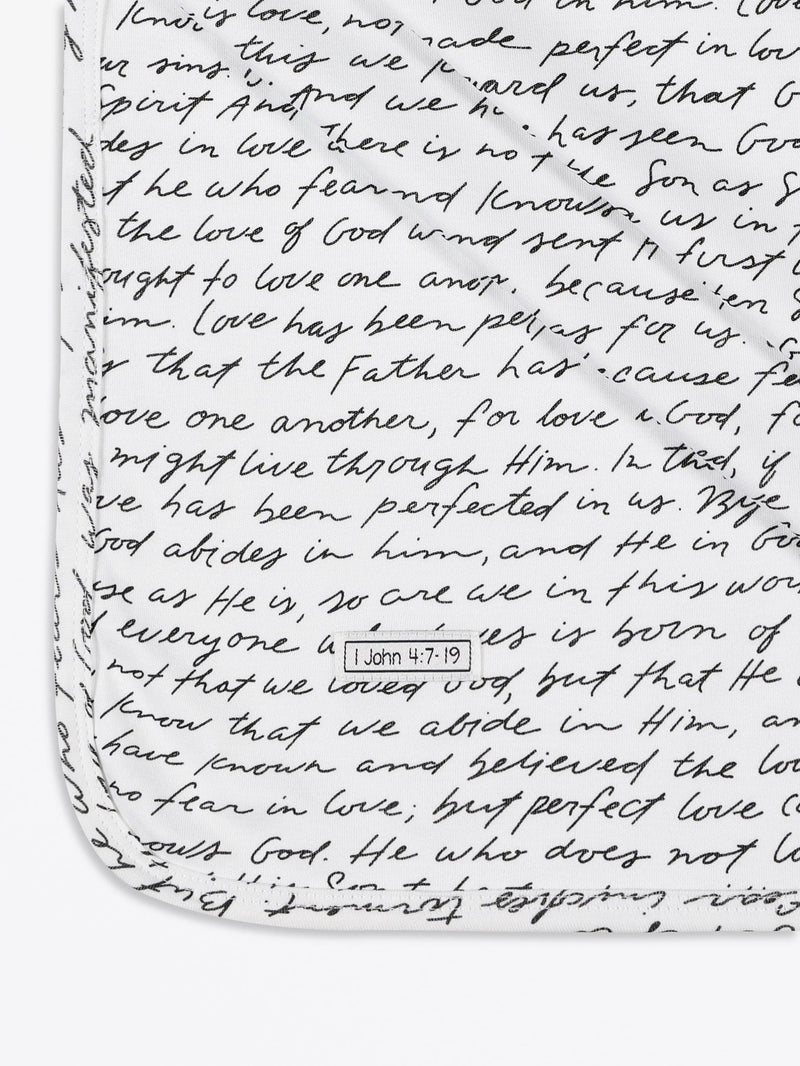 God in him. Love
Know is love, not made perfect in love
our sins. this we toward us, that G
Spirit And And we has seen God
des in love There is no the Son as S
t he who fear nd Knows us in t
the love of God w nd sent H first l
ought to love one anot because en S
im. Love has been per as for us.
s that the Father has cause fe
love one another, for love God, fo
might live through Him. In if
ove has been perfected in us. By
God abides in him, and He in God
use as He is, so are we in this wor
d everyone w ves is born of
1 John 4:7-19
not that we loved God, but that He
Know that we abide in Him, an
have known and believed the lov
no fear in love; but perfect love c
nows God. He who does not l
who fears has
of God was manifested
But he
fear involves torment. But